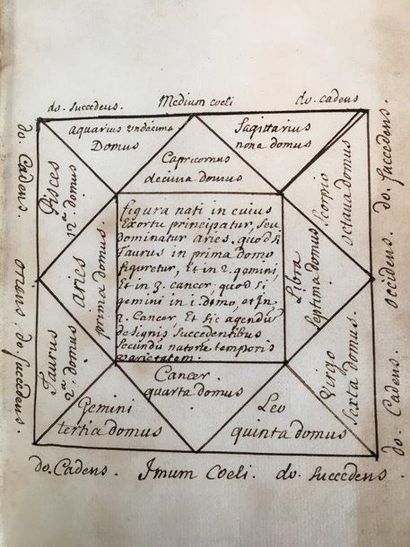 do. succedens. Medium coeli do. cadens
aquarius undecima
Domus
Sagittarius
nona domus
Capricornus
decima domus
Pisces
12ª. domus
Scorpio
octava domus
aries
prima domo
figura nati in cuius
Exortu principatur, seu
dominatur aries. quod si
Taurus in prima domo
figuretur, Et in 2. gemini,
Et in 3. cancer, quod si
gemini in 1. Domo et In
2. Cancer. Et sic agendū
de signis succedentibus
secundū natorū temporis
varietatem.
Libra
septima domus
Taurus
2ª. domus
Virgo
sexta domus
Cancer
quarta domus
Gemini
tertia domus
Leo
quinta domus
do. Cadens. oriens. do. succedens
do. Cadens. occidens. do. succedens.
do. Cadens. Imum Coeli. do. succedens